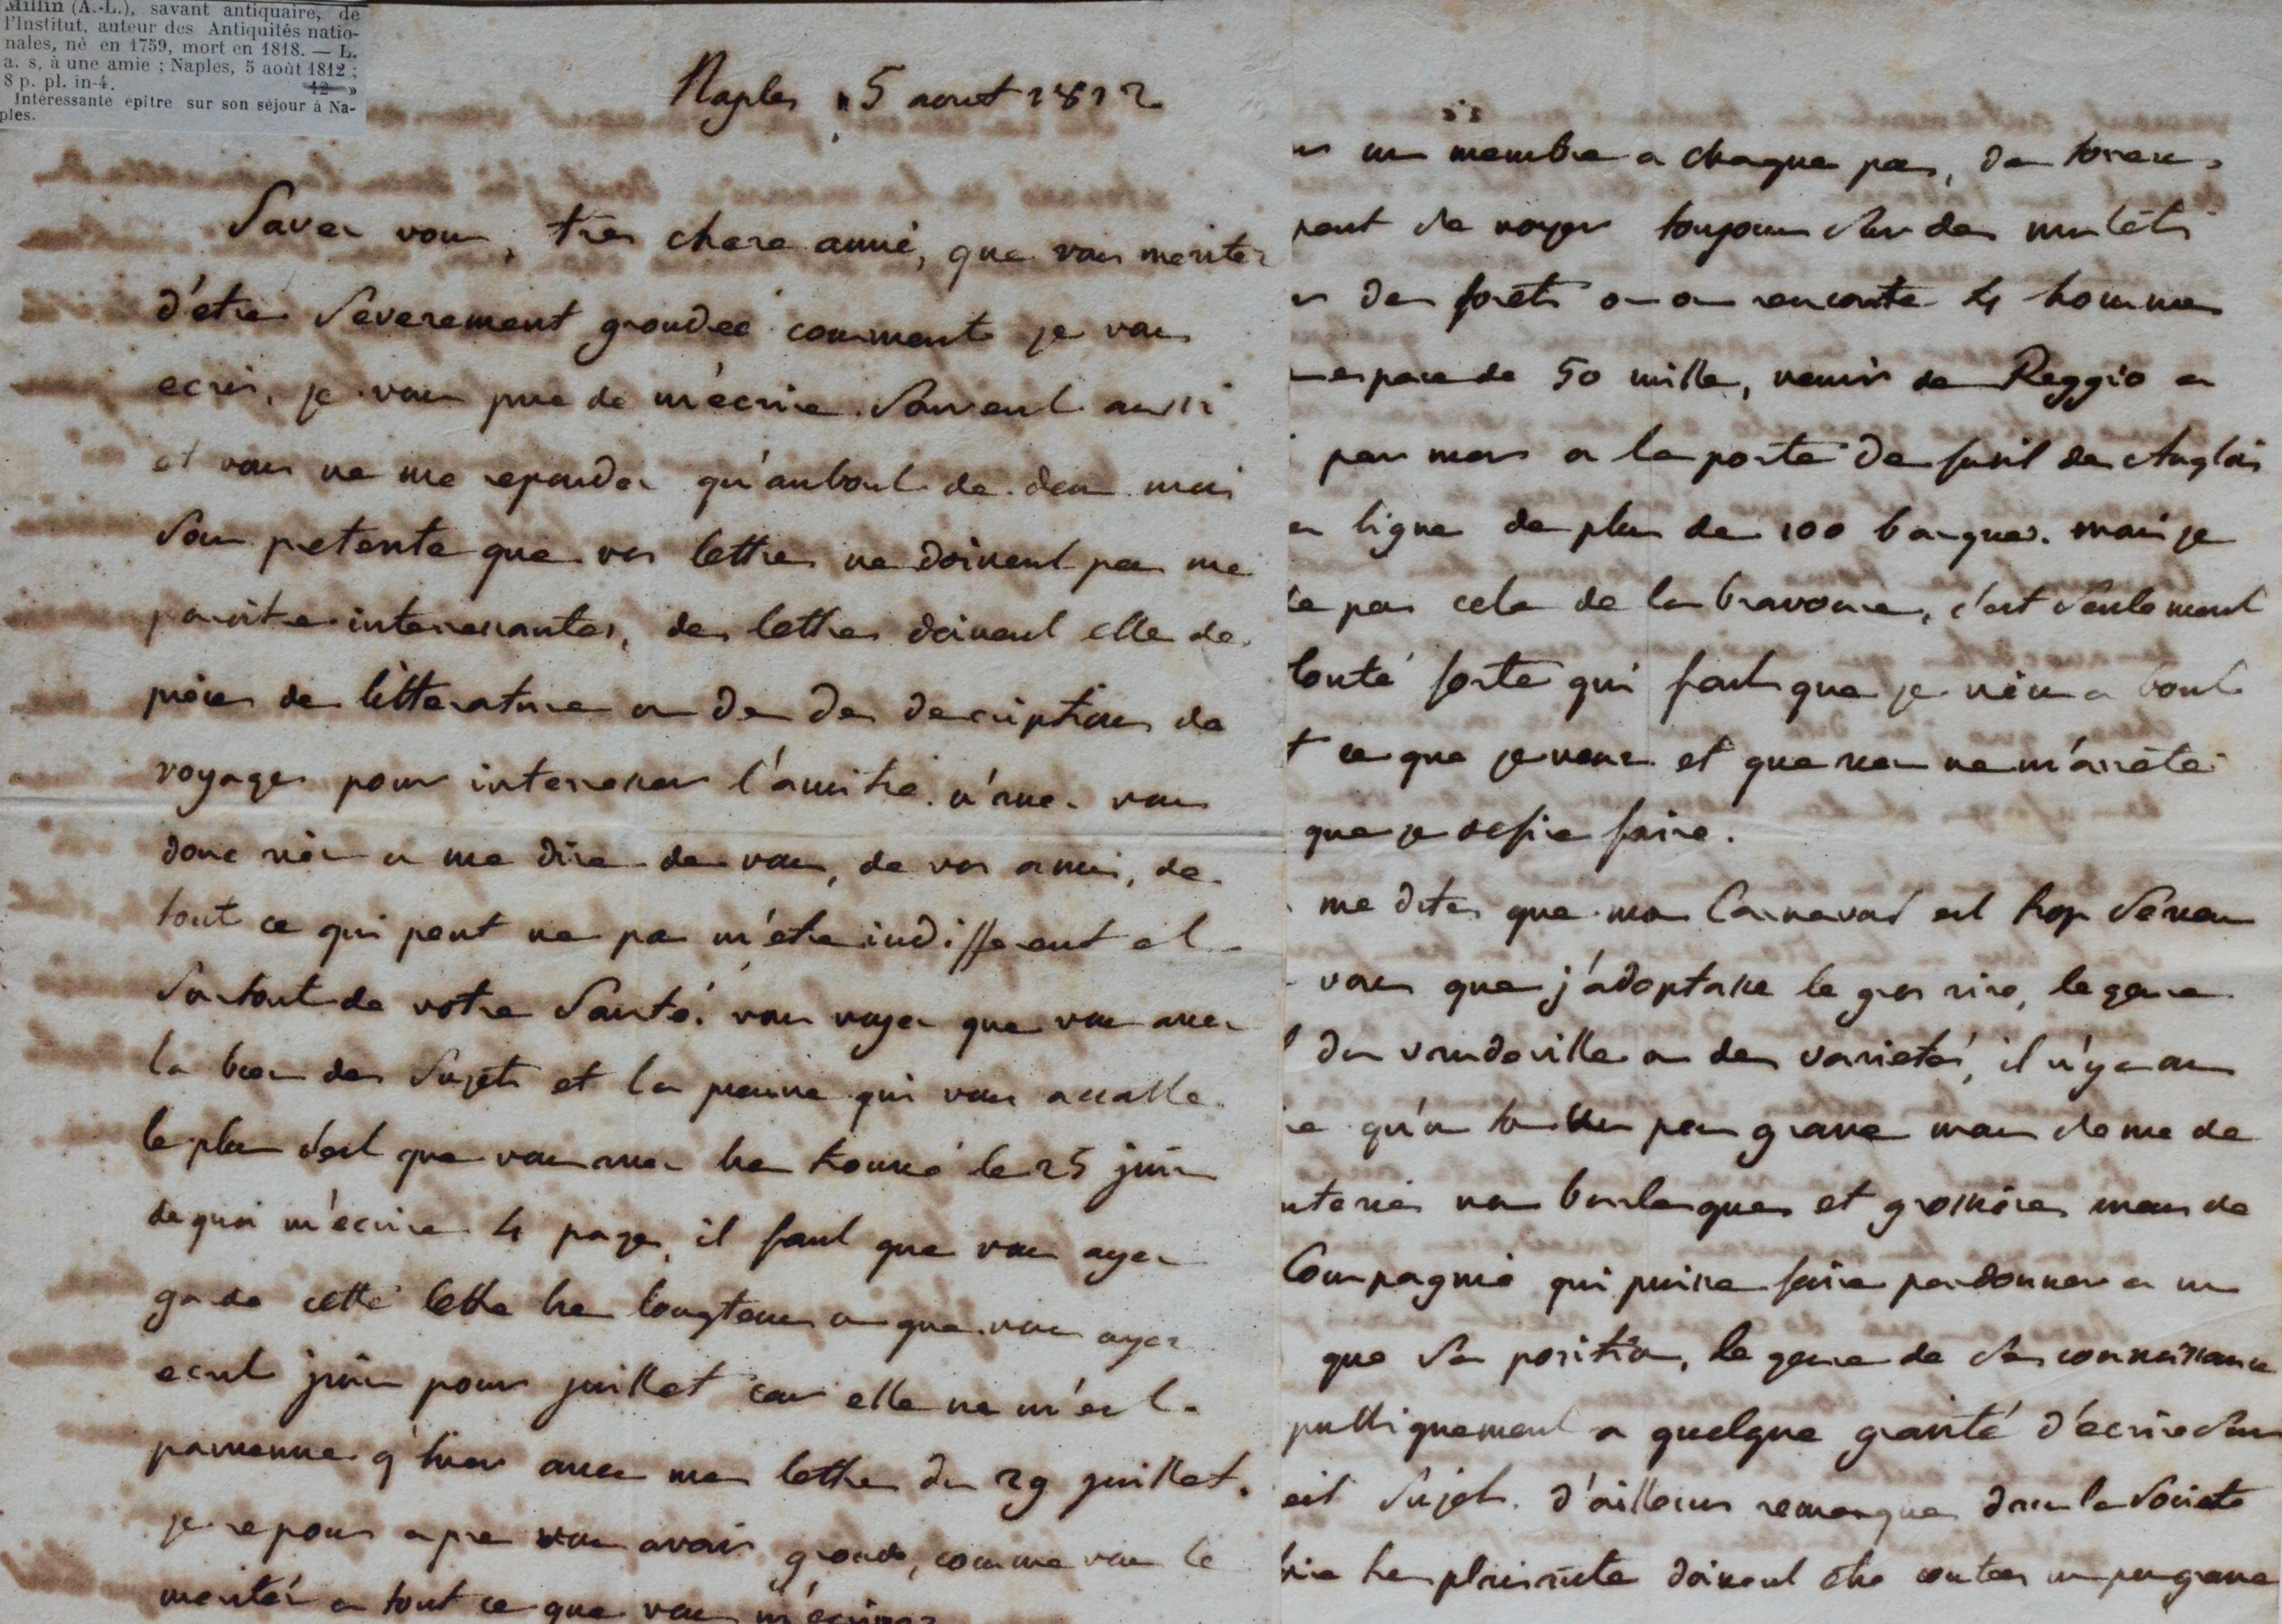 Millin (A.-L.), savant antiquaire, de
l'Institut, auteur des Antiquités natio-
nales, né en 1759, mort en 1818. — L.
a. s. à une amie ; Naples, 5 août 1812 ;
8 p. pl. in-4. 12 »
Intéressante épître sur son séjour à Na-
ples.
Naples 5 aout 1812
Savez vous, tres chere amie, que vous meritez
d'etre severement grondée comment je vous
ecris, je vous prie de m'ecrire souvent aussi
et vous ne me repondez qu'au bout de deux mois
sous pretexte que vos lettres ne doivent pas me
paroitre interessantes, des lettres doivent elle des
pieces de litterature ou de des descriptions de
voyages pour interesser l'amitié. n'avez vous
donc rien a me dire de vous, de vos amis, de
tout ce qui peut ne pas m'etre indifferent et
surtout de votre santé. vous voyez que vous avez
la bien des sujets et la preuve qui vous accable
le plus c'est que vous avez bien trouvé le 25 juin
de quoi m'ecrire 4 pages, il faut que vous ayez
gardé cette lettre bien longtems ou que vous ayez
ecrit juin pour juillet car elle ne m'est
parvenue q'hier avec mes lettres du 29 juillet.
je repons apres vous avoir grondé, comme vous le
meritez a tout ce que vous m'ecrivez
un membre a chaque pas, de
de voyager toujours sur des mulets
des forets ou on rencontre 4 hommes
espace de 50 mille, venir de Reggio a
par mer a la portée de fusil des Anglois
ligne de plus de 100 barques. mais je
pas cela de la bravoure, c'est seulement
lonté forte qui fait que je viens a bout
ce que je veux et que rien ne m'arrête
que je desire faire.
me dites que mon Carnaval est trop serieux
vous que j'adoptasse le gros rire, le genre
du vaudeville ou des varietés, il n'y a
qu'un ton un peu grave mais semé de
nteries non burlesques et grossieres mais de
Compagnie qui puisse faire pardonner a un
que sa position, le genre de ses connoissances
publiquement a quelque gravité d'ecrire sur
sujet. d'ailleurs remarquez dans la société
plaisante doivent etre contées un peu grave